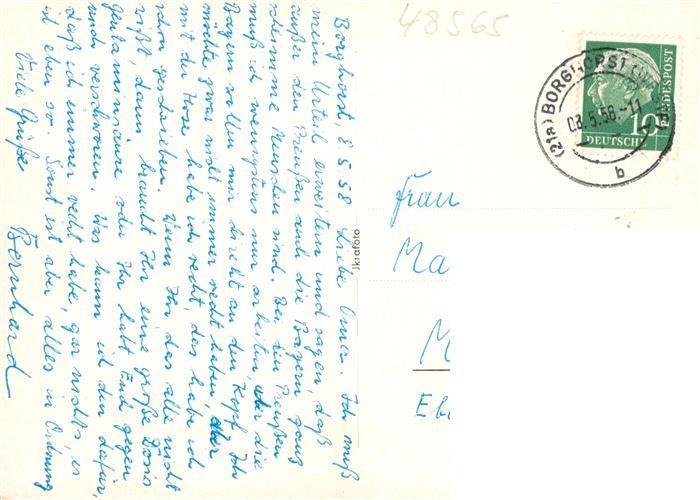 48565
Borghorst, 8.5.58 Liebe Oma. Ich muß
mein Urteil erweitern und sagen, daß
außer den Preußen auch die Bayern ganz
schlimme Menschen sind. Bei den Preußen
muß ich wenigstens nur arbeiten aber die
Bayern wollen mir direkt an den Kopf. Ich
möchte zwar nicht immer recht haben, aber
mit der Hose habe ich recht, das habe ich
schon geschrieben. Wenn Ihr das alle nicht
wißt, dann braucht Ihr eine große Dosis
oder Ihr habt Euch gegen
mich verschworen. Was kann ich denn dafür,
daß ich immer recht habe, gar nichts, es
ist eben so. Sonst ist aber alles in Ordnung
Viele Grüße
Bernhard
Jkrafoto
(21a) BORGHORST (WESTF)
08.5.58.-11
b
10
DEUTSCHE BUNDESPOST
Frau
Ma
M
Eb